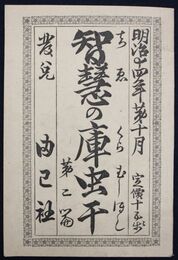 明治十四年第十月
定價十五銭
ちゑのくらむしほし
智慧の庫虫干
第二篇
発兌
由己社